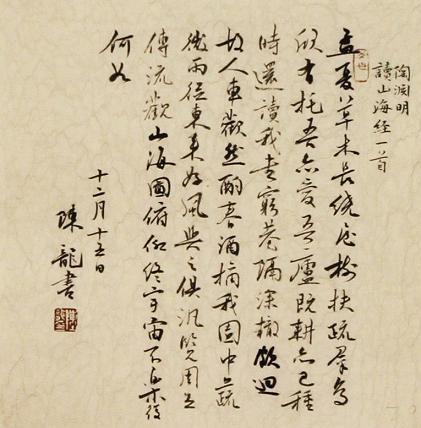 陶渊明
讀山海経一首
孟夏草木長繞屋樹扶疏羣鳥
欣有托吾亦愛吾廬既耕亦已種
時還讀我書窮巷隔深轍頗迴
故人車歡然酌春酒摘我園中蔬
微雨從東來好風與之俱汎覽周王
傳流觀山海圖俯仰終宇宙不樂復
何如
十二月十五日
陳龍書